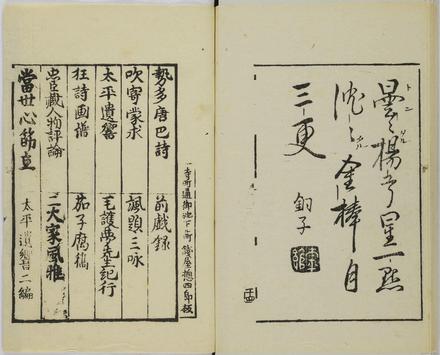 星一點
金棒月
三更
銅子
廿四
寺町通御池下ル町 錢屋惣四郎板
勢多唐巴詩 前戯録
吹寄蒙求 瓢頭三咏
太平遺響 毛護夢先生紀行
狂詩画譜 茄子腐藁
忠臣藏人物評論 二大家風雅
當世心筋立 太平遺響二編